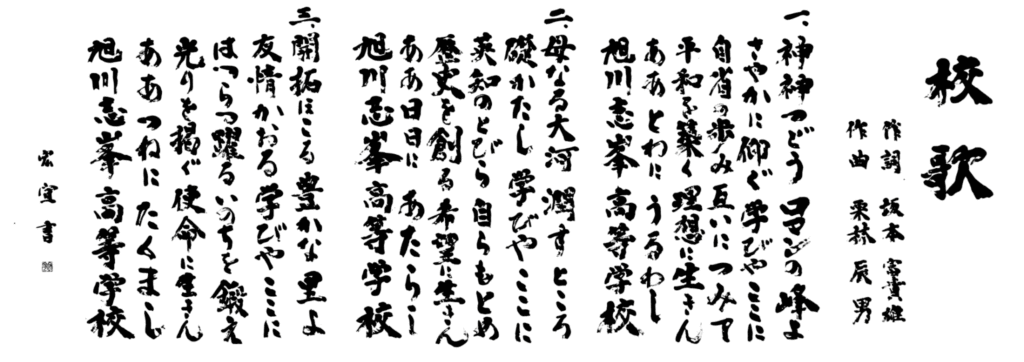 校歌
作詞 坂本 富貴雄
作曲 栗林 辰男
一、神神つどう ロマンの峰よ
さやかに仰ぐ 学びやここに
自省の歩み 互いにつみて
平和を築く 理想に生きん
ああ とわに うるわし
旭川志峯高等学校
二、母なる大河 潤すところ
礎かたし 学びやここに
英知のとびら 自らもとめ
歴史を創る 希望に生きん
ああ日日に あたらし
旭川志峯高等学校
三、開拓にこる 豊かな里よ
友情かおる 学びやここに
はつらつ躍る いのちを鍛え
光りを掲ぐ 使命に生きん
ああつねに たくまし
旭川志峯高等学校
書